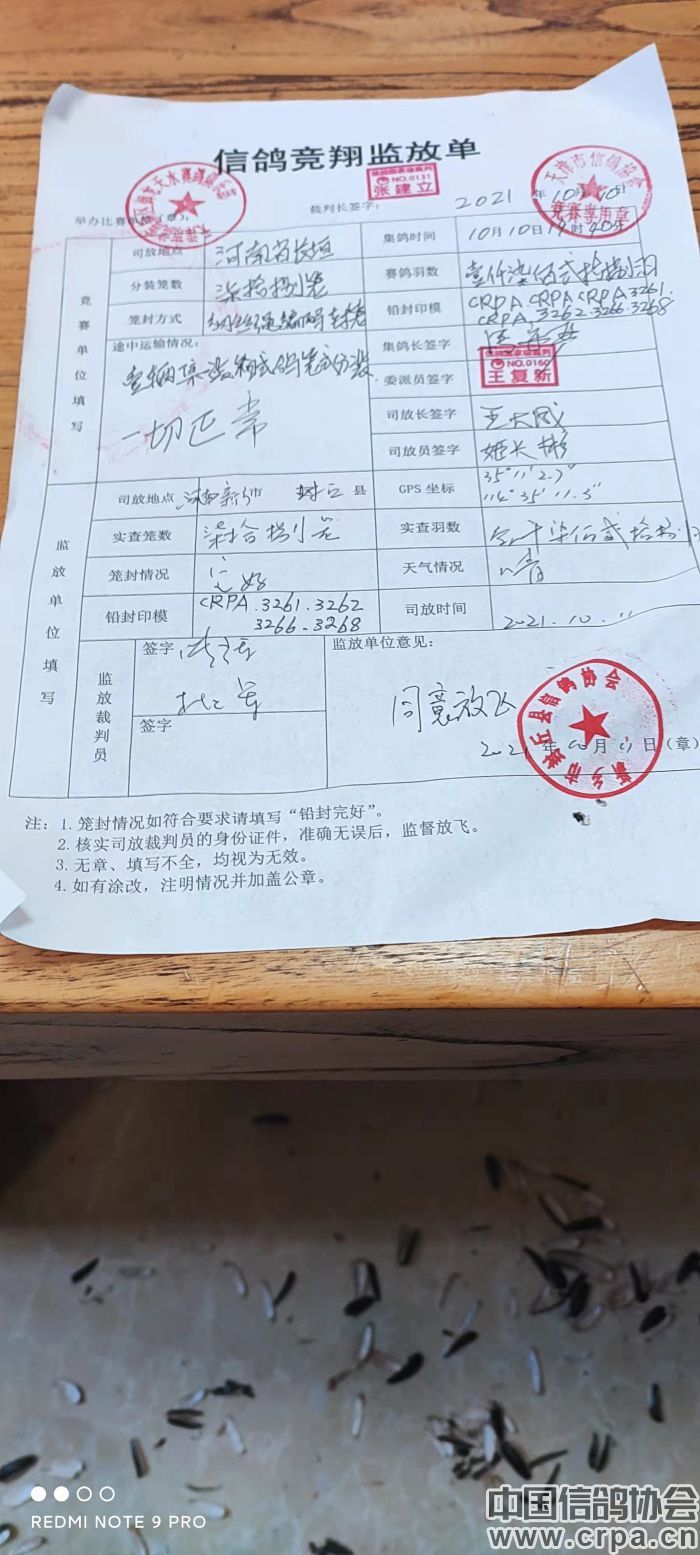 信鸽竞翔监放单
NO.0131
张建立
天津市信鸽协会
竞赛专用章
举办比赛单位(章): 裁判长签字: 2021年10月10日
竞赛单位填写
司放地点 河南省长垣 集鸽时间 10月10日19时40分
分装笼数 柒拾捌笼 赛鸽羽数
笼封方式 铅封印模 CRPA CRPA CRPA 3261.
CRPA 3262.3266.3268
途中运输情况: 集鸽长签字
一切正常
委派员签字 NO.0160
王复新
司放长签字 王大成
司放员签字
监放单位填写
司放地点 封丘县 GPS坐标 35°11′2.7″
114°35′11.3″
实查笼数 柒拾捌笼 实查羽数
笼封情况 完好 天气情况 晴
铅封印模 CRPA.3261.3262
3266.3268
司放时间 2021.10.11
监放裁判员
签字
签字
监放单位意见:
同意放飞
新乡市封丘县信鸽协会
2021年10月11日(章)
注: 1. 笼封情况如符合要求请填写“铅封完好”。
2. 核实司放裁判员的身份证件，准确无误后，监督放飞。
3. 无章、填写不全，均视为无效。
4. 如有涂改，注明情况并加盖公章。
REDMI NOTE 9 PRO
中国信鸽协会
www.crpa.cn